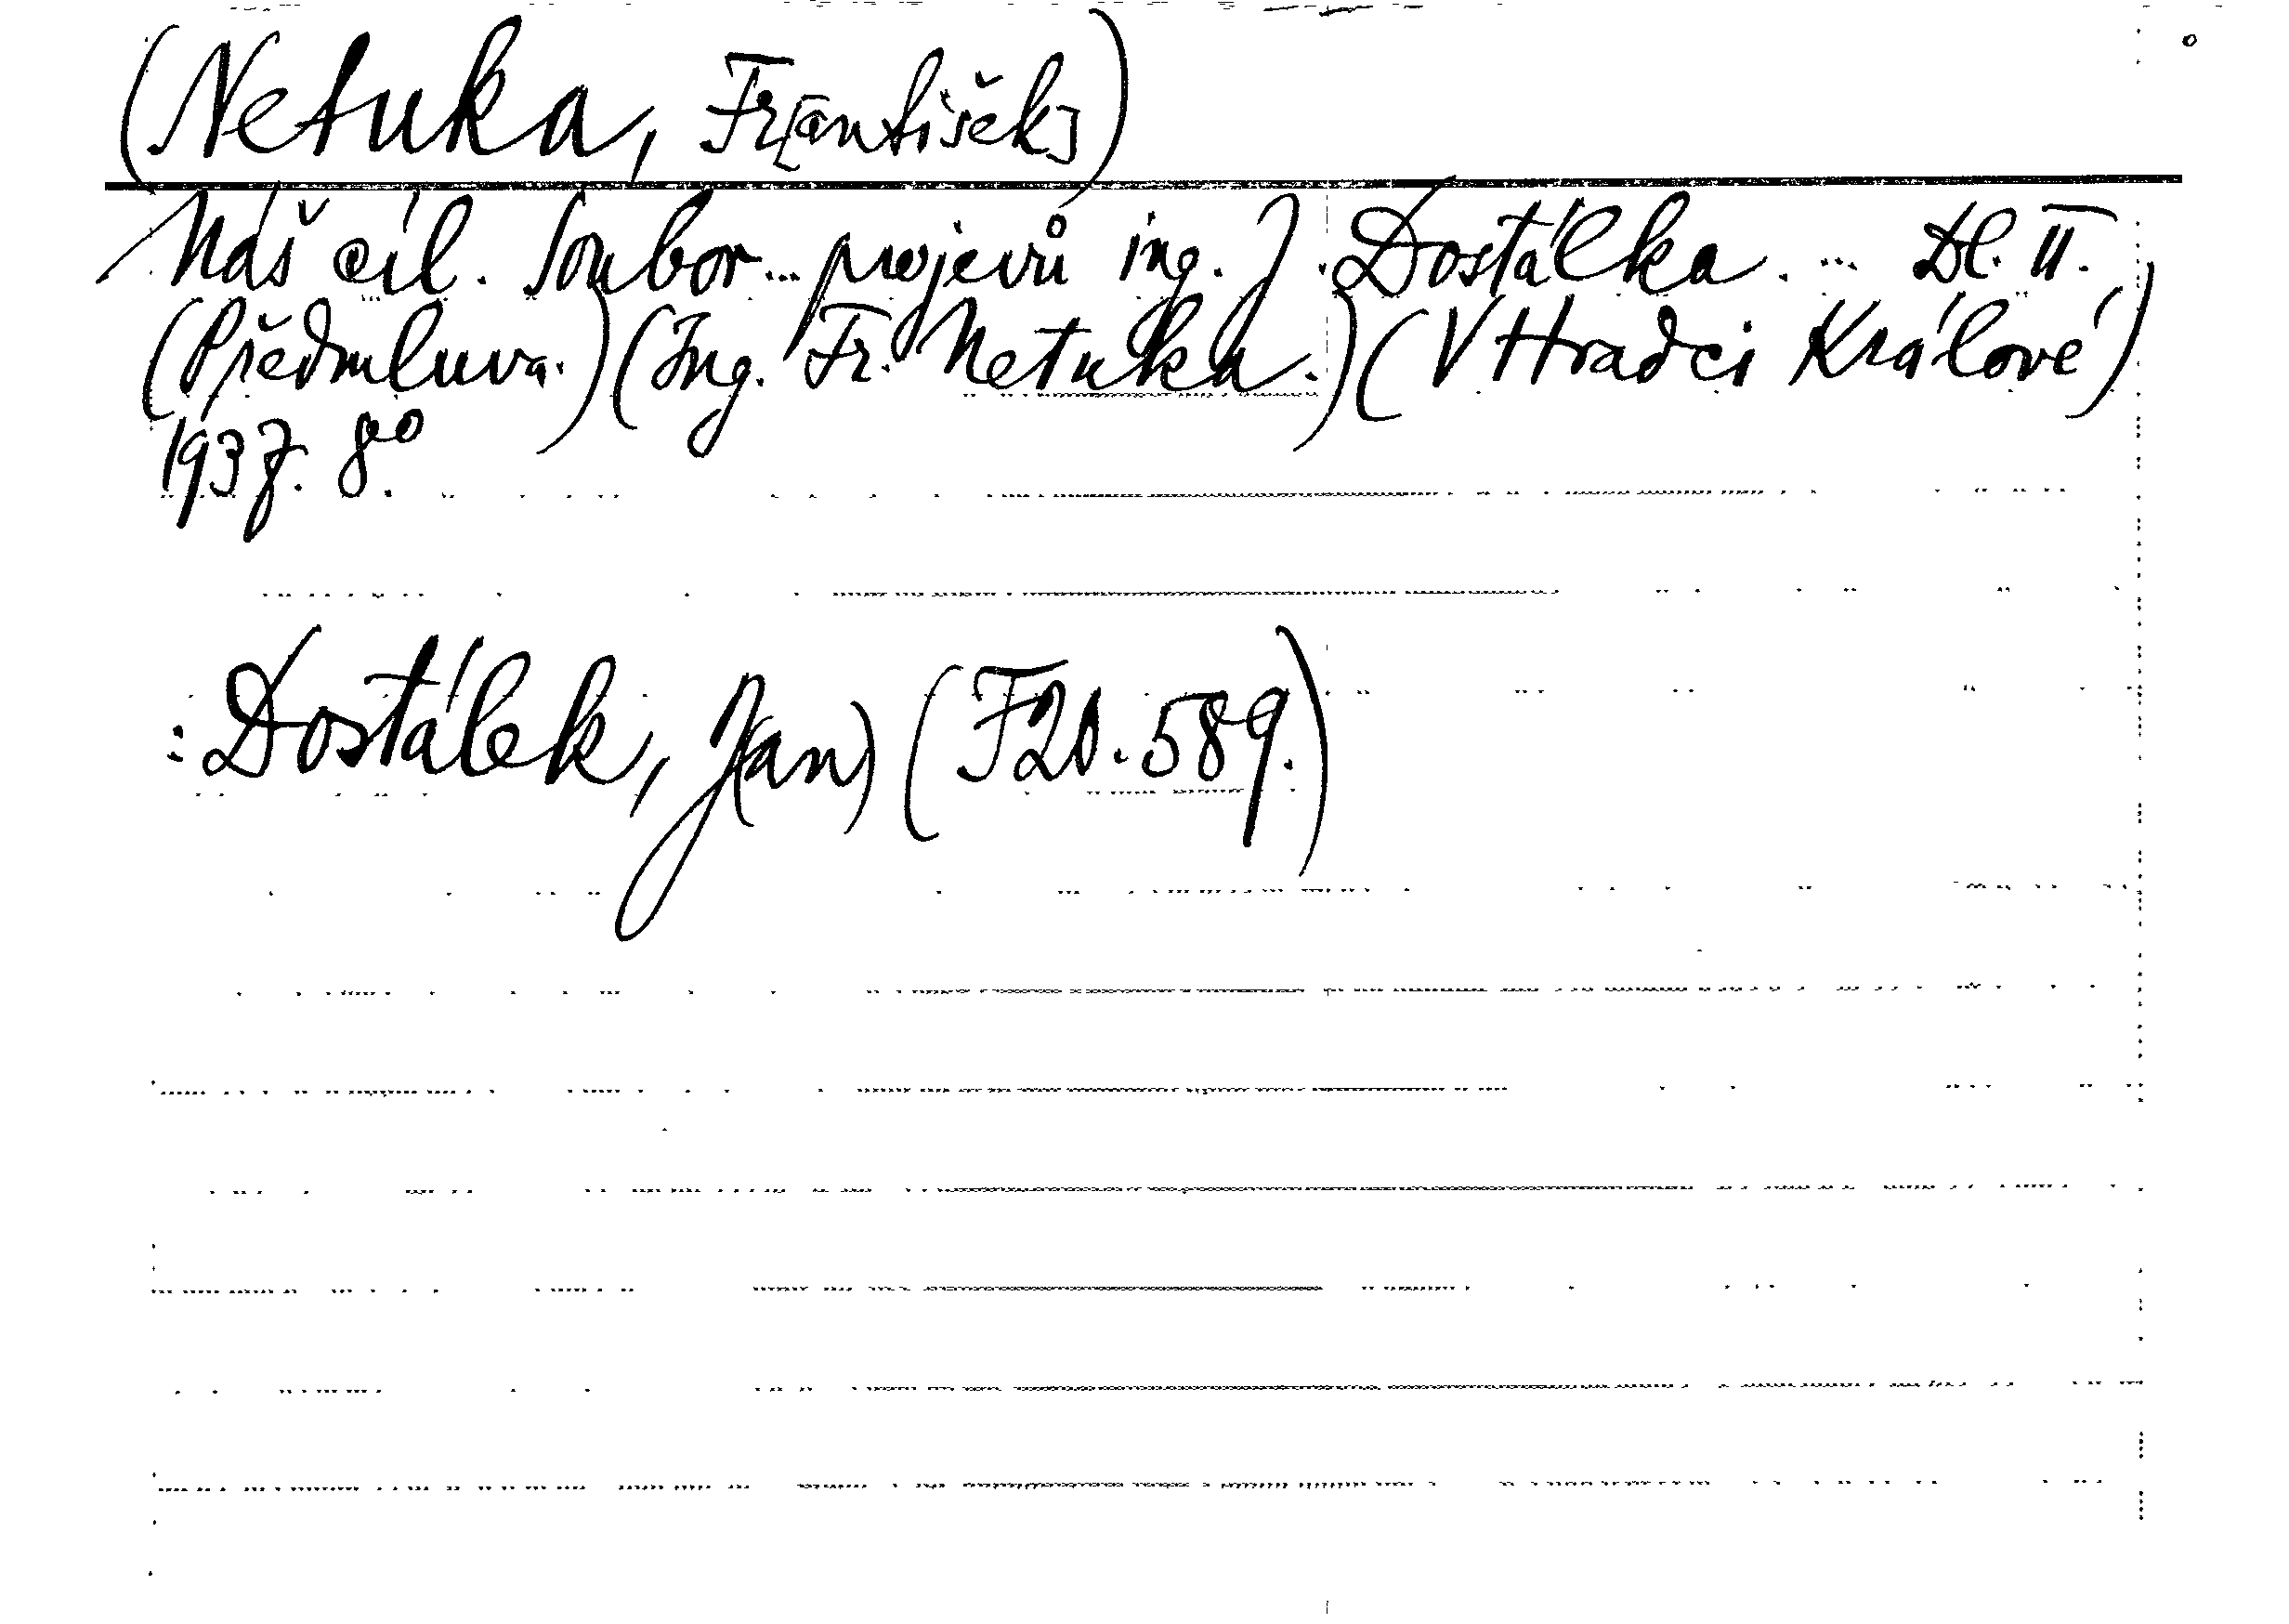 (Netuka, Fr[antišek])
Náš cíl. Soubor... projevů ing. J. Dostálka. ... Dl. II.
(Předmluva.) (Ing. Fr. Netuka.) (V Hradci Králové)
1937. 8°.
: Dostálek, J(an) (F20.589.)